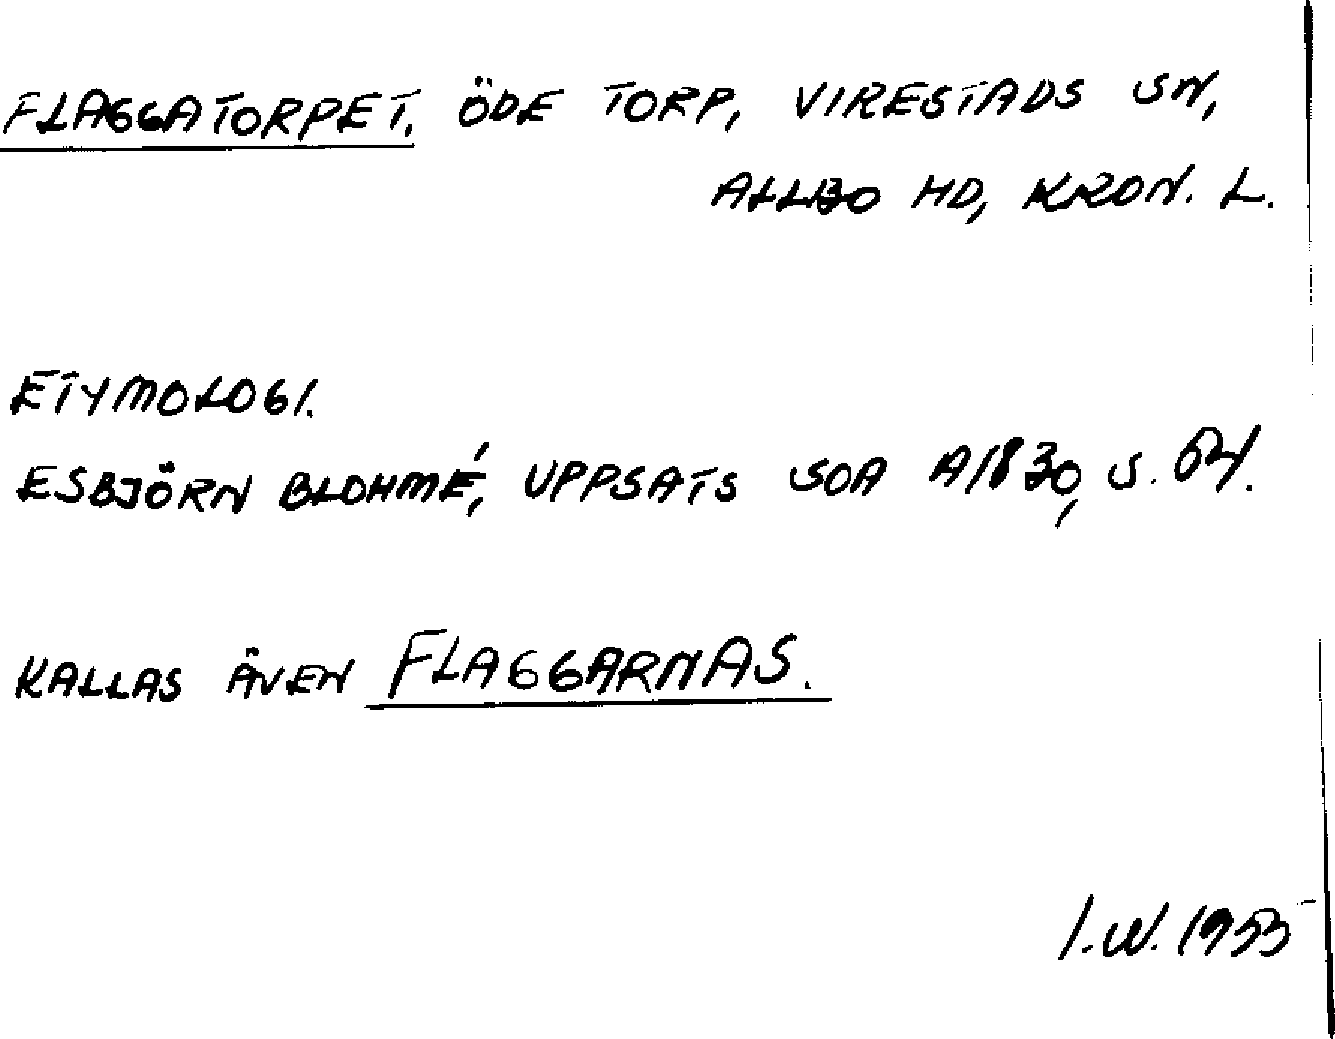 FLAGGATORPET. ÖDE TORP, VIRESTADS SN,
ALLBO HD, KRON. L.
ETYMOLOGI.
ESBJÖRN BLOHMÉ, UPPSATS SOA A1830, S.
KALLAS ÄVEN FLAGGARNAS.
I.W. 1953